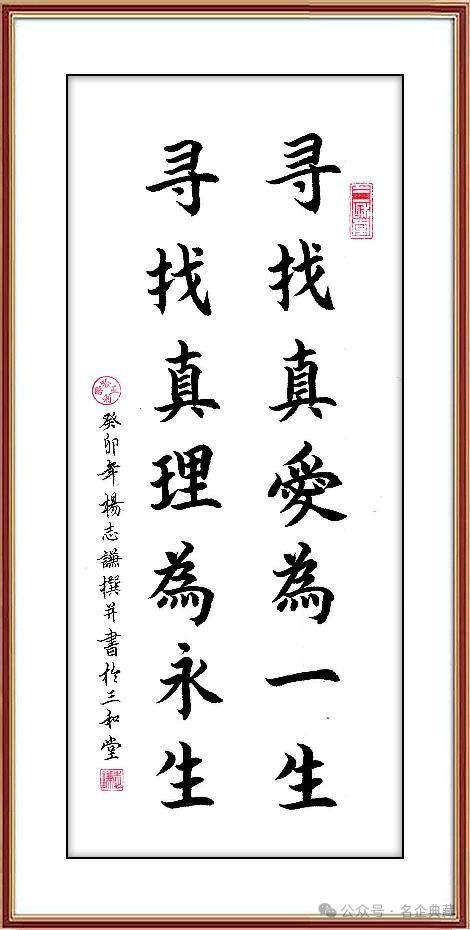 寻找真愛為一生
寻找真理為永生
癸卯年楊志謙撰并書於三和堂
公众号·名企典藏